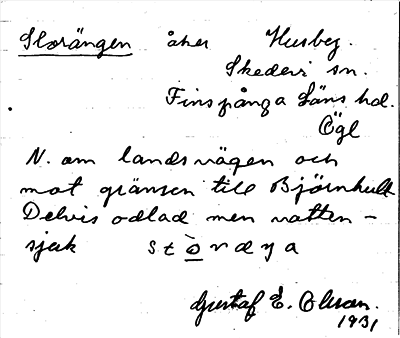 Storängen åker Husby.
Skedevi sn.
Finspånga Läns hd.
Ögl
N. om landsvägen och
mot gränsen till Björnhult
Delvis odlad men vatten-
sjuk stòræŋa
Gustaf E. Olsson.
1931